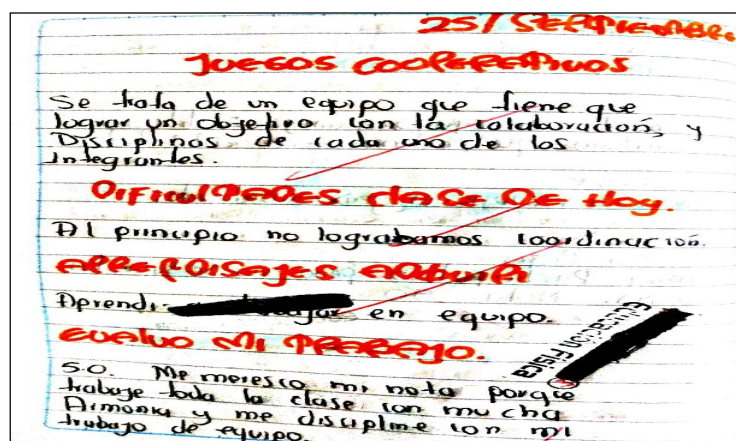 25/SEPTIEMBRE
JUEGOS COOPERATIVOS
Se trata de un equipo que tiene que
lograr un objetivo con la colaboración, y
Disciplinas de cada uno de los
integrantes.
DIFICULTADES CLASE DE HOY.
Al principio no lograbamos coordinación.
APRENDISAJES ADQUIRI
Aprendi en equipo.
EVALUO MI TRABAJO.
5.0. Me meresco mi nota porque
trabaje toda la clase con mucha
Armonia y me discipline con mi
trabajo de equipo.
Educación Física